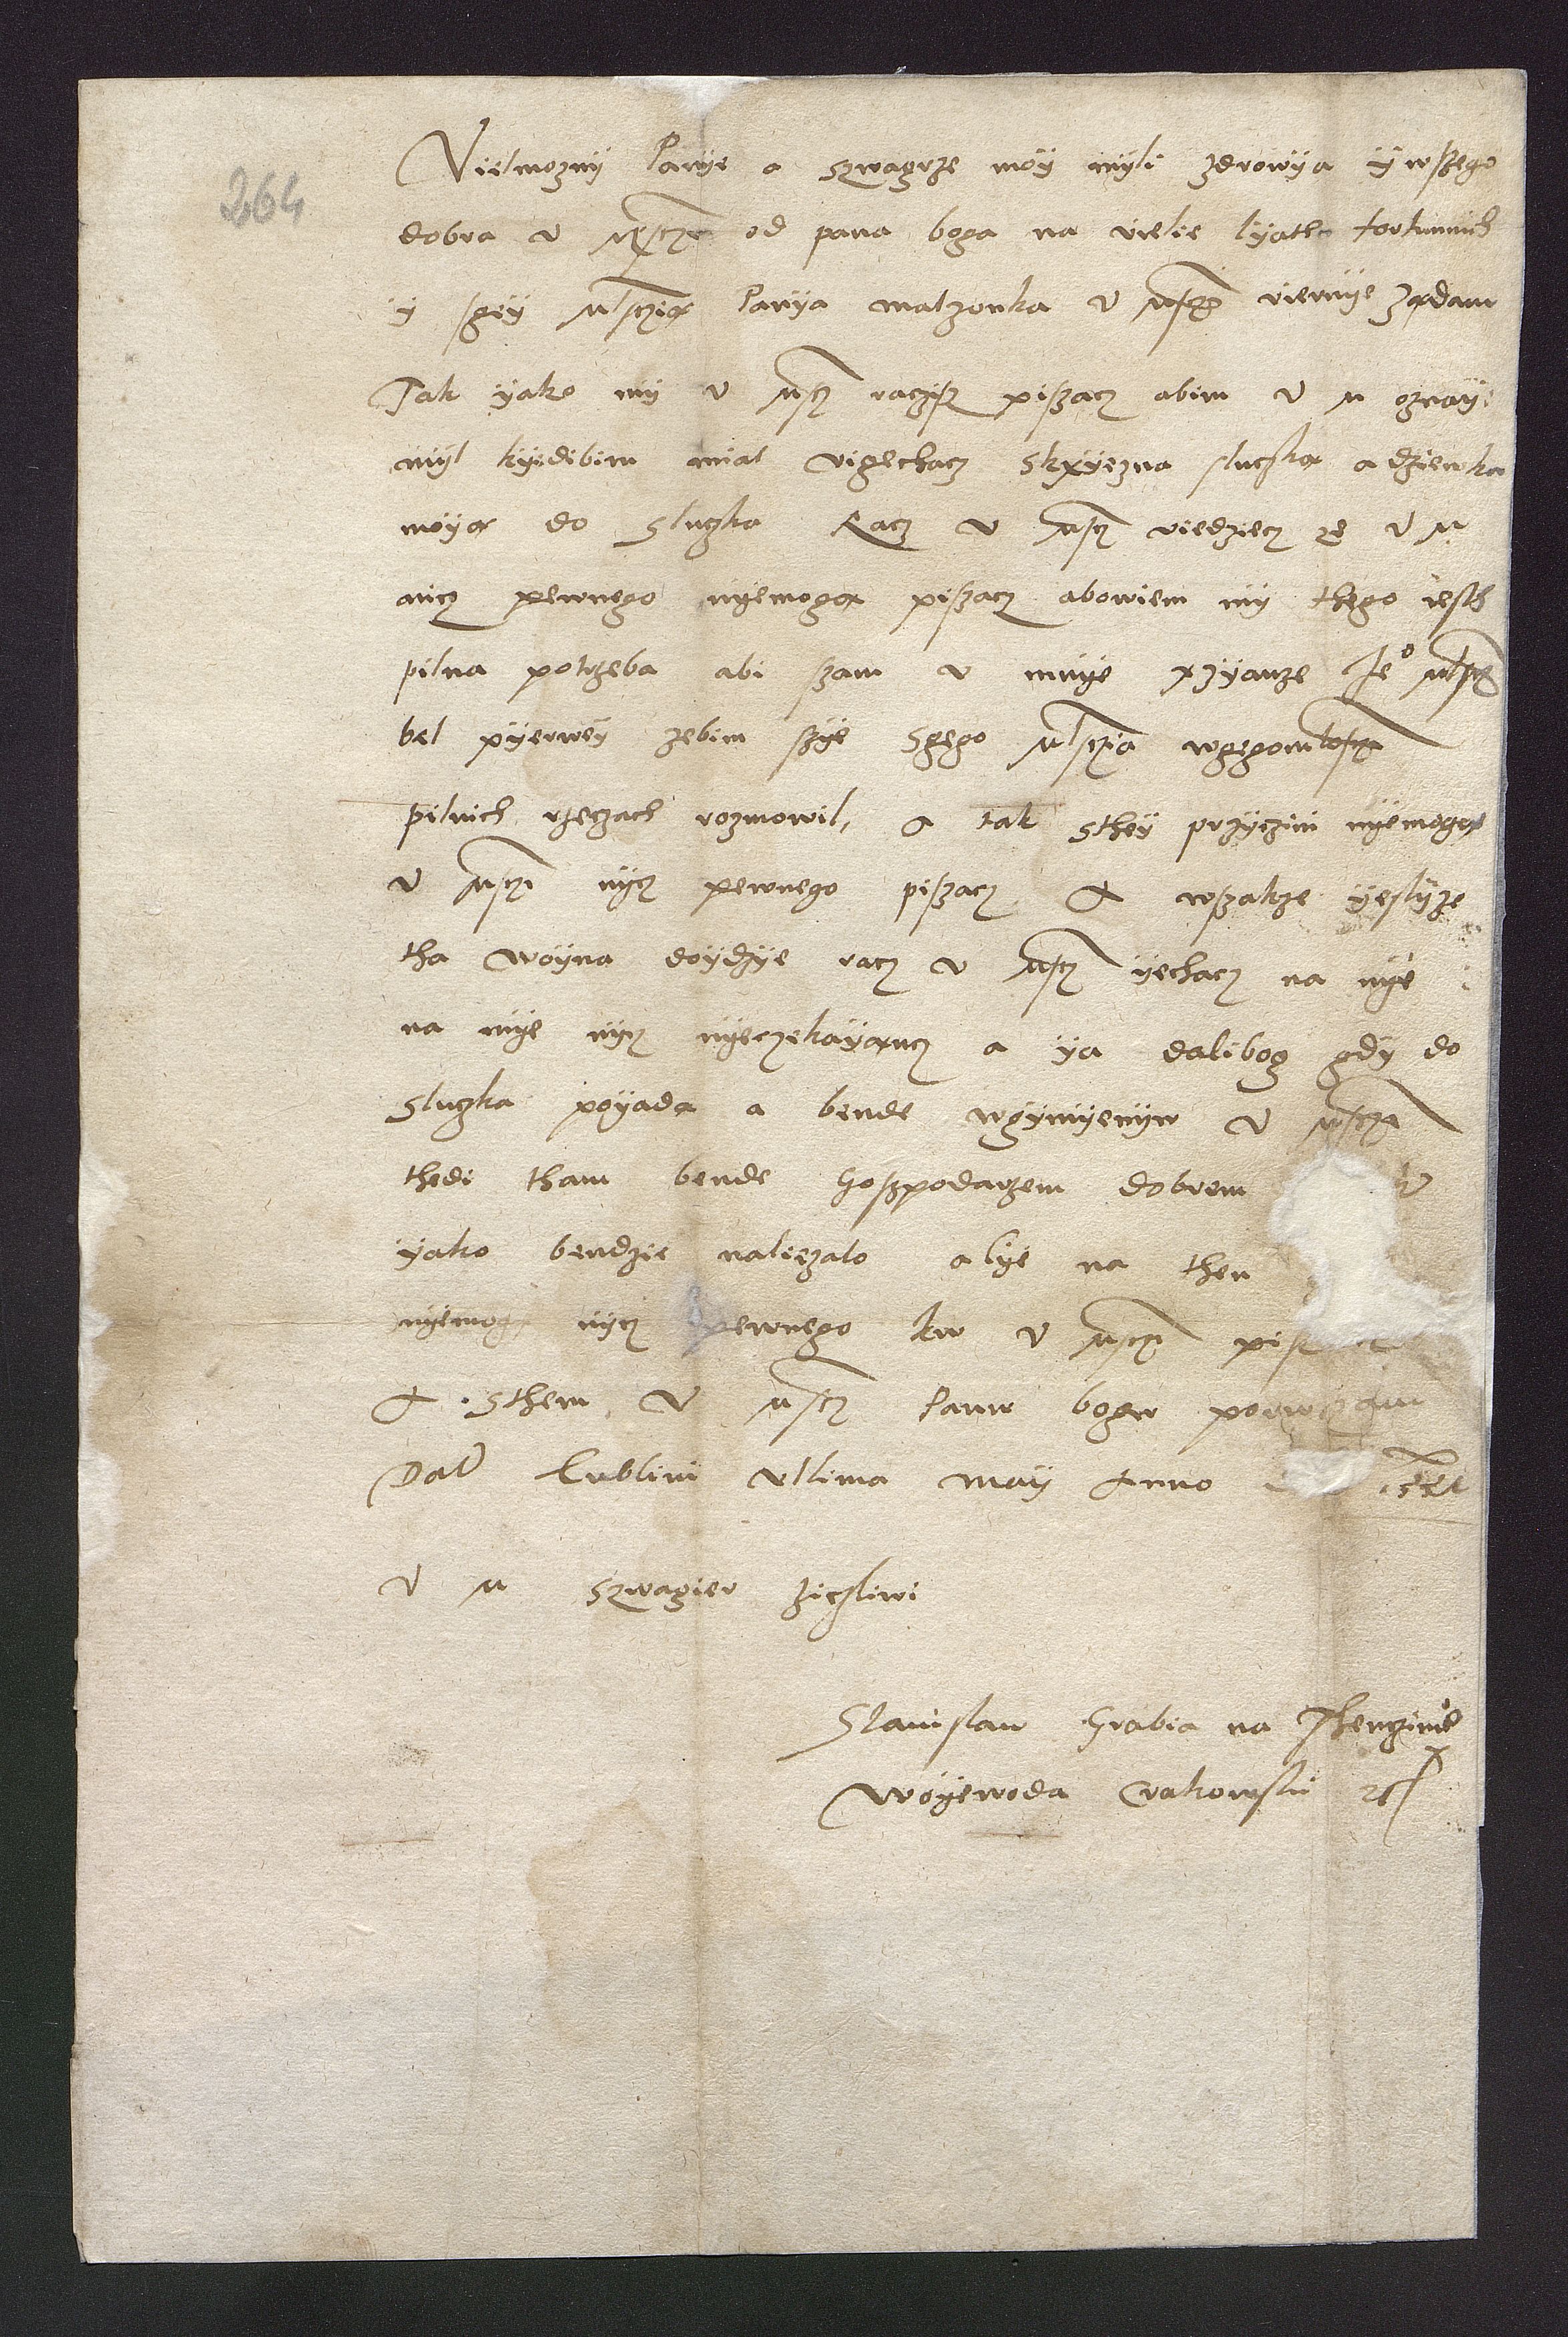 264
Vielmozny Panye a szwagrze moy myli zdrowya y wszego
dobra v msczi od pana boga na vielie lyath fortunnich
y sgey mlsczią Panya malzonka v msczi viernye ządam
Tak yako my v mscz raczisz pissacz abim v m oznay
myl kyedibim mial vigechacz skxyezna sluczką a dziewka
moyą do Sluczka Racz v mscz viedziecz ze v m
nicz pewnego nyemogą pissacz abowiem my thego iesth
pilna potrzeba abi szam v mnye xzyanze Ie° mlscz
bel pyerwey zebim szye sgego mlsczia wgegomlosczi
pilnich rzeczach rozmowil, a tak sthey przyczini nyemogą
v msczi nycz pewnego pissacz A wszakze yeslyze
tha woyna doydzye racz v mscz yechacz na nye
na mye nycz nyeczekayancz a ya dalibog gdy do
Sluczka poyada a bende wgymyenyw v msczi
thedi tham bende gospodarzem dobrem v
yako bendzie nalezalo alye na then
nyemogą nycz pewnego kw v msczi
A sthem v mscz Panw bogw porwczam
Dat Lublini vltima may Anno
v m szwagier ziczliwi
Stanislaw Hrabia na Thenczinie
Woyewoda Crakowski